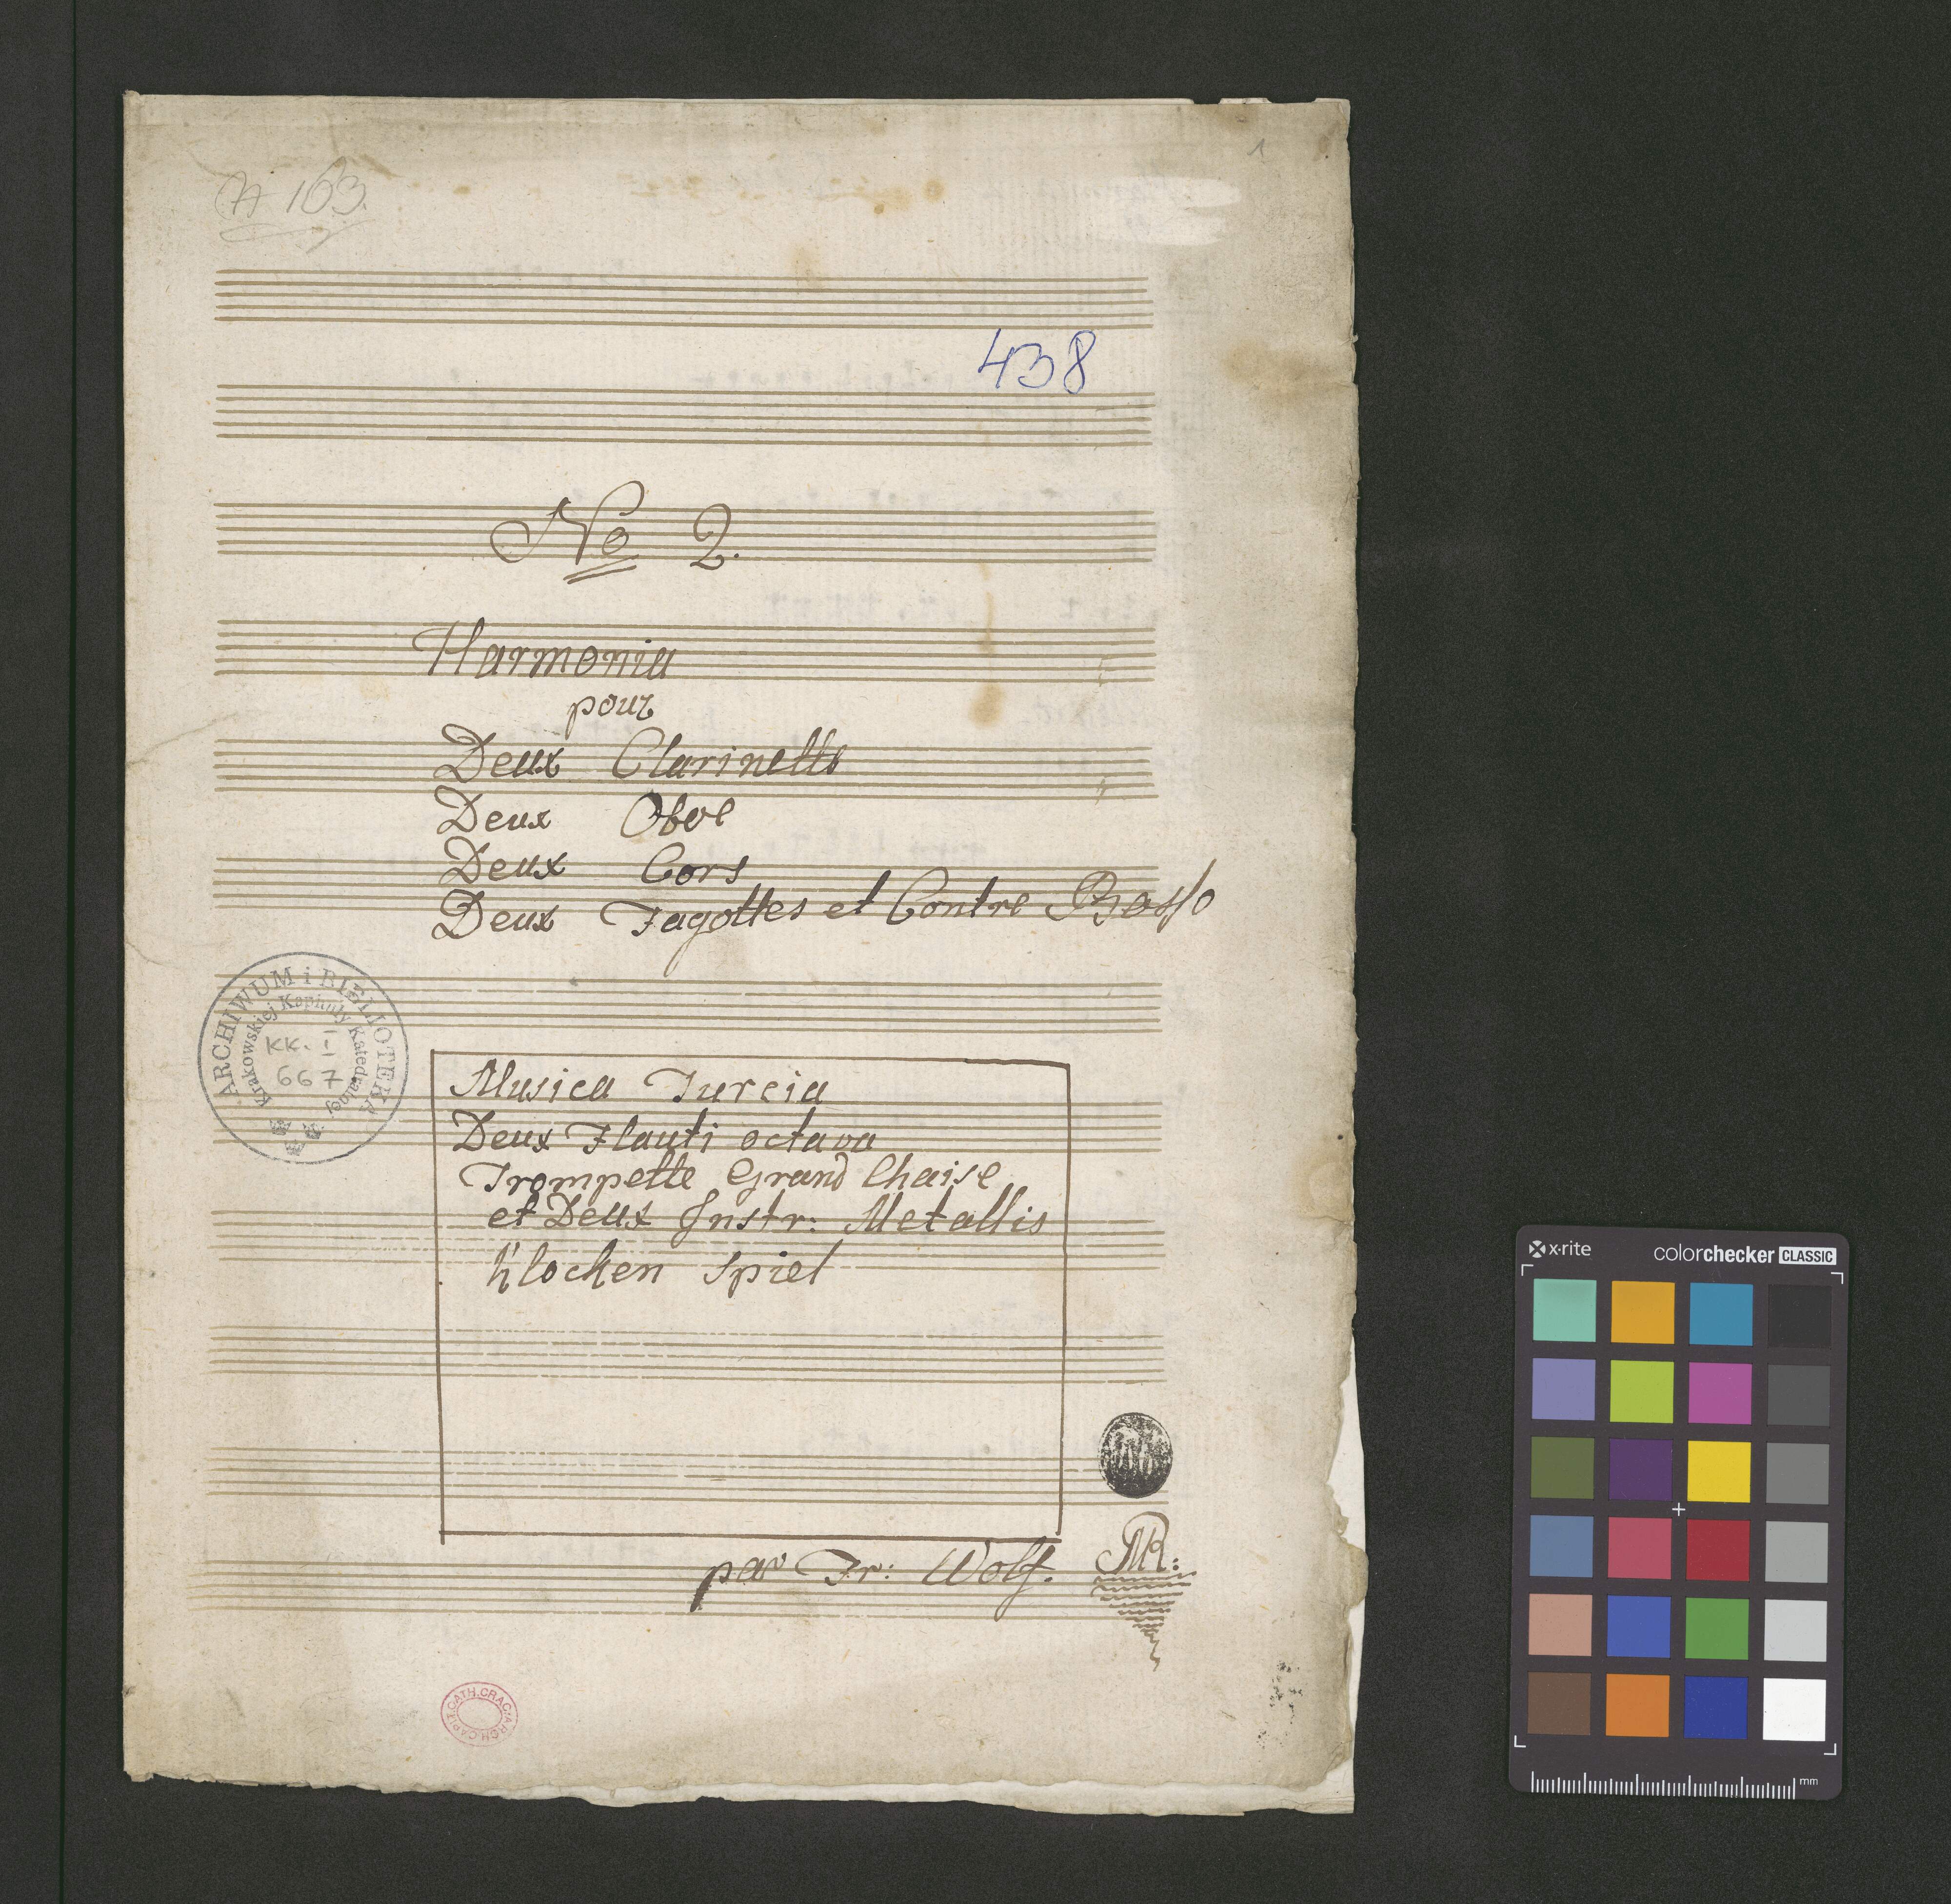 1
A 163.
438
No 2.
Harmonia
pour
Deux Clarinetts
Deux Oboe
Deux Cors
Deux Fagottes et Contre Basso
ARCHIWUM i BIBLIOTEKA
Krakowskiej Kapituły Katedralnej
KK. I
667
Musica Turcia
Deux Flauti octava
Trompette Grand Chaise
et Deux Instr: Metallis
Klocken Spiel
par Fr: Wolf. MR:
ARCH.CAPIT.CATH.CRAC.
x-rite colorchecker CLASSIC
mm